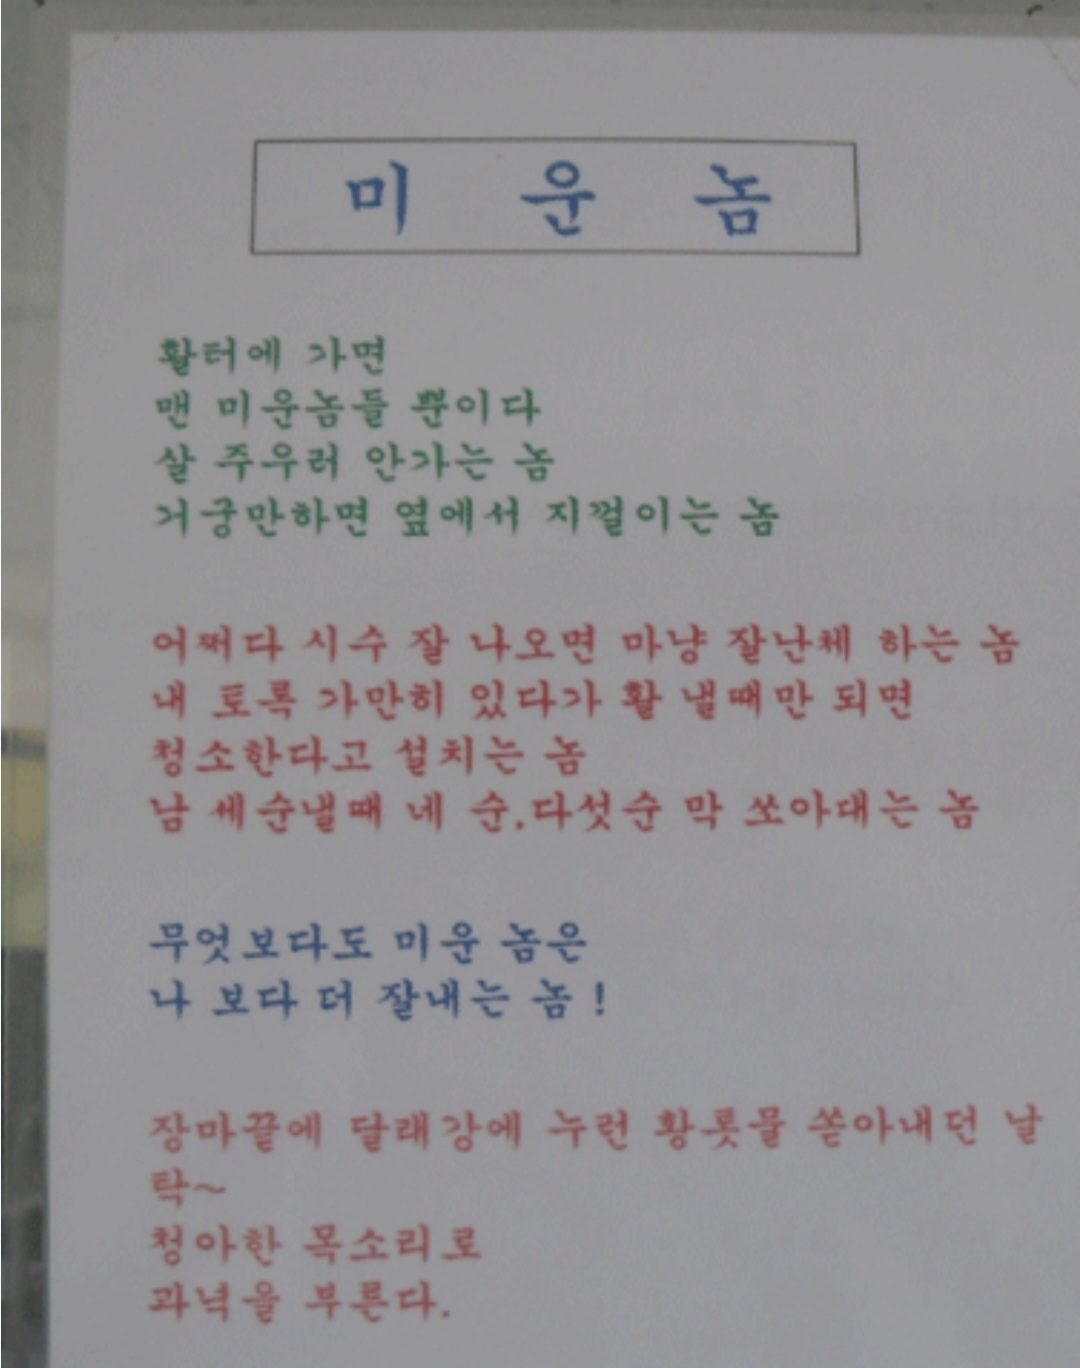 미 운 놈
활터에 가면
맨 미운놈들 뿐이다
살 주우러 안가는 놈
거궁만하면 옆에서 지껄이는 놈
어쩌다 시수 잘 나오면 마냥 잘난체 하는 놈
내 토록 가만히 있다가 활 낼때만 되면
청소한다고 설치는 놈
남 세순낼때 네 순.다섯순 막 쏘아대는 놈
무엇보다도 미운 놈은
나 보다 더 잘내는 놈 !
장마끝에 달래강에 누런 황톳물 쏟아내던 날
탁~
청아한 목소리로
과녁을 부른다.